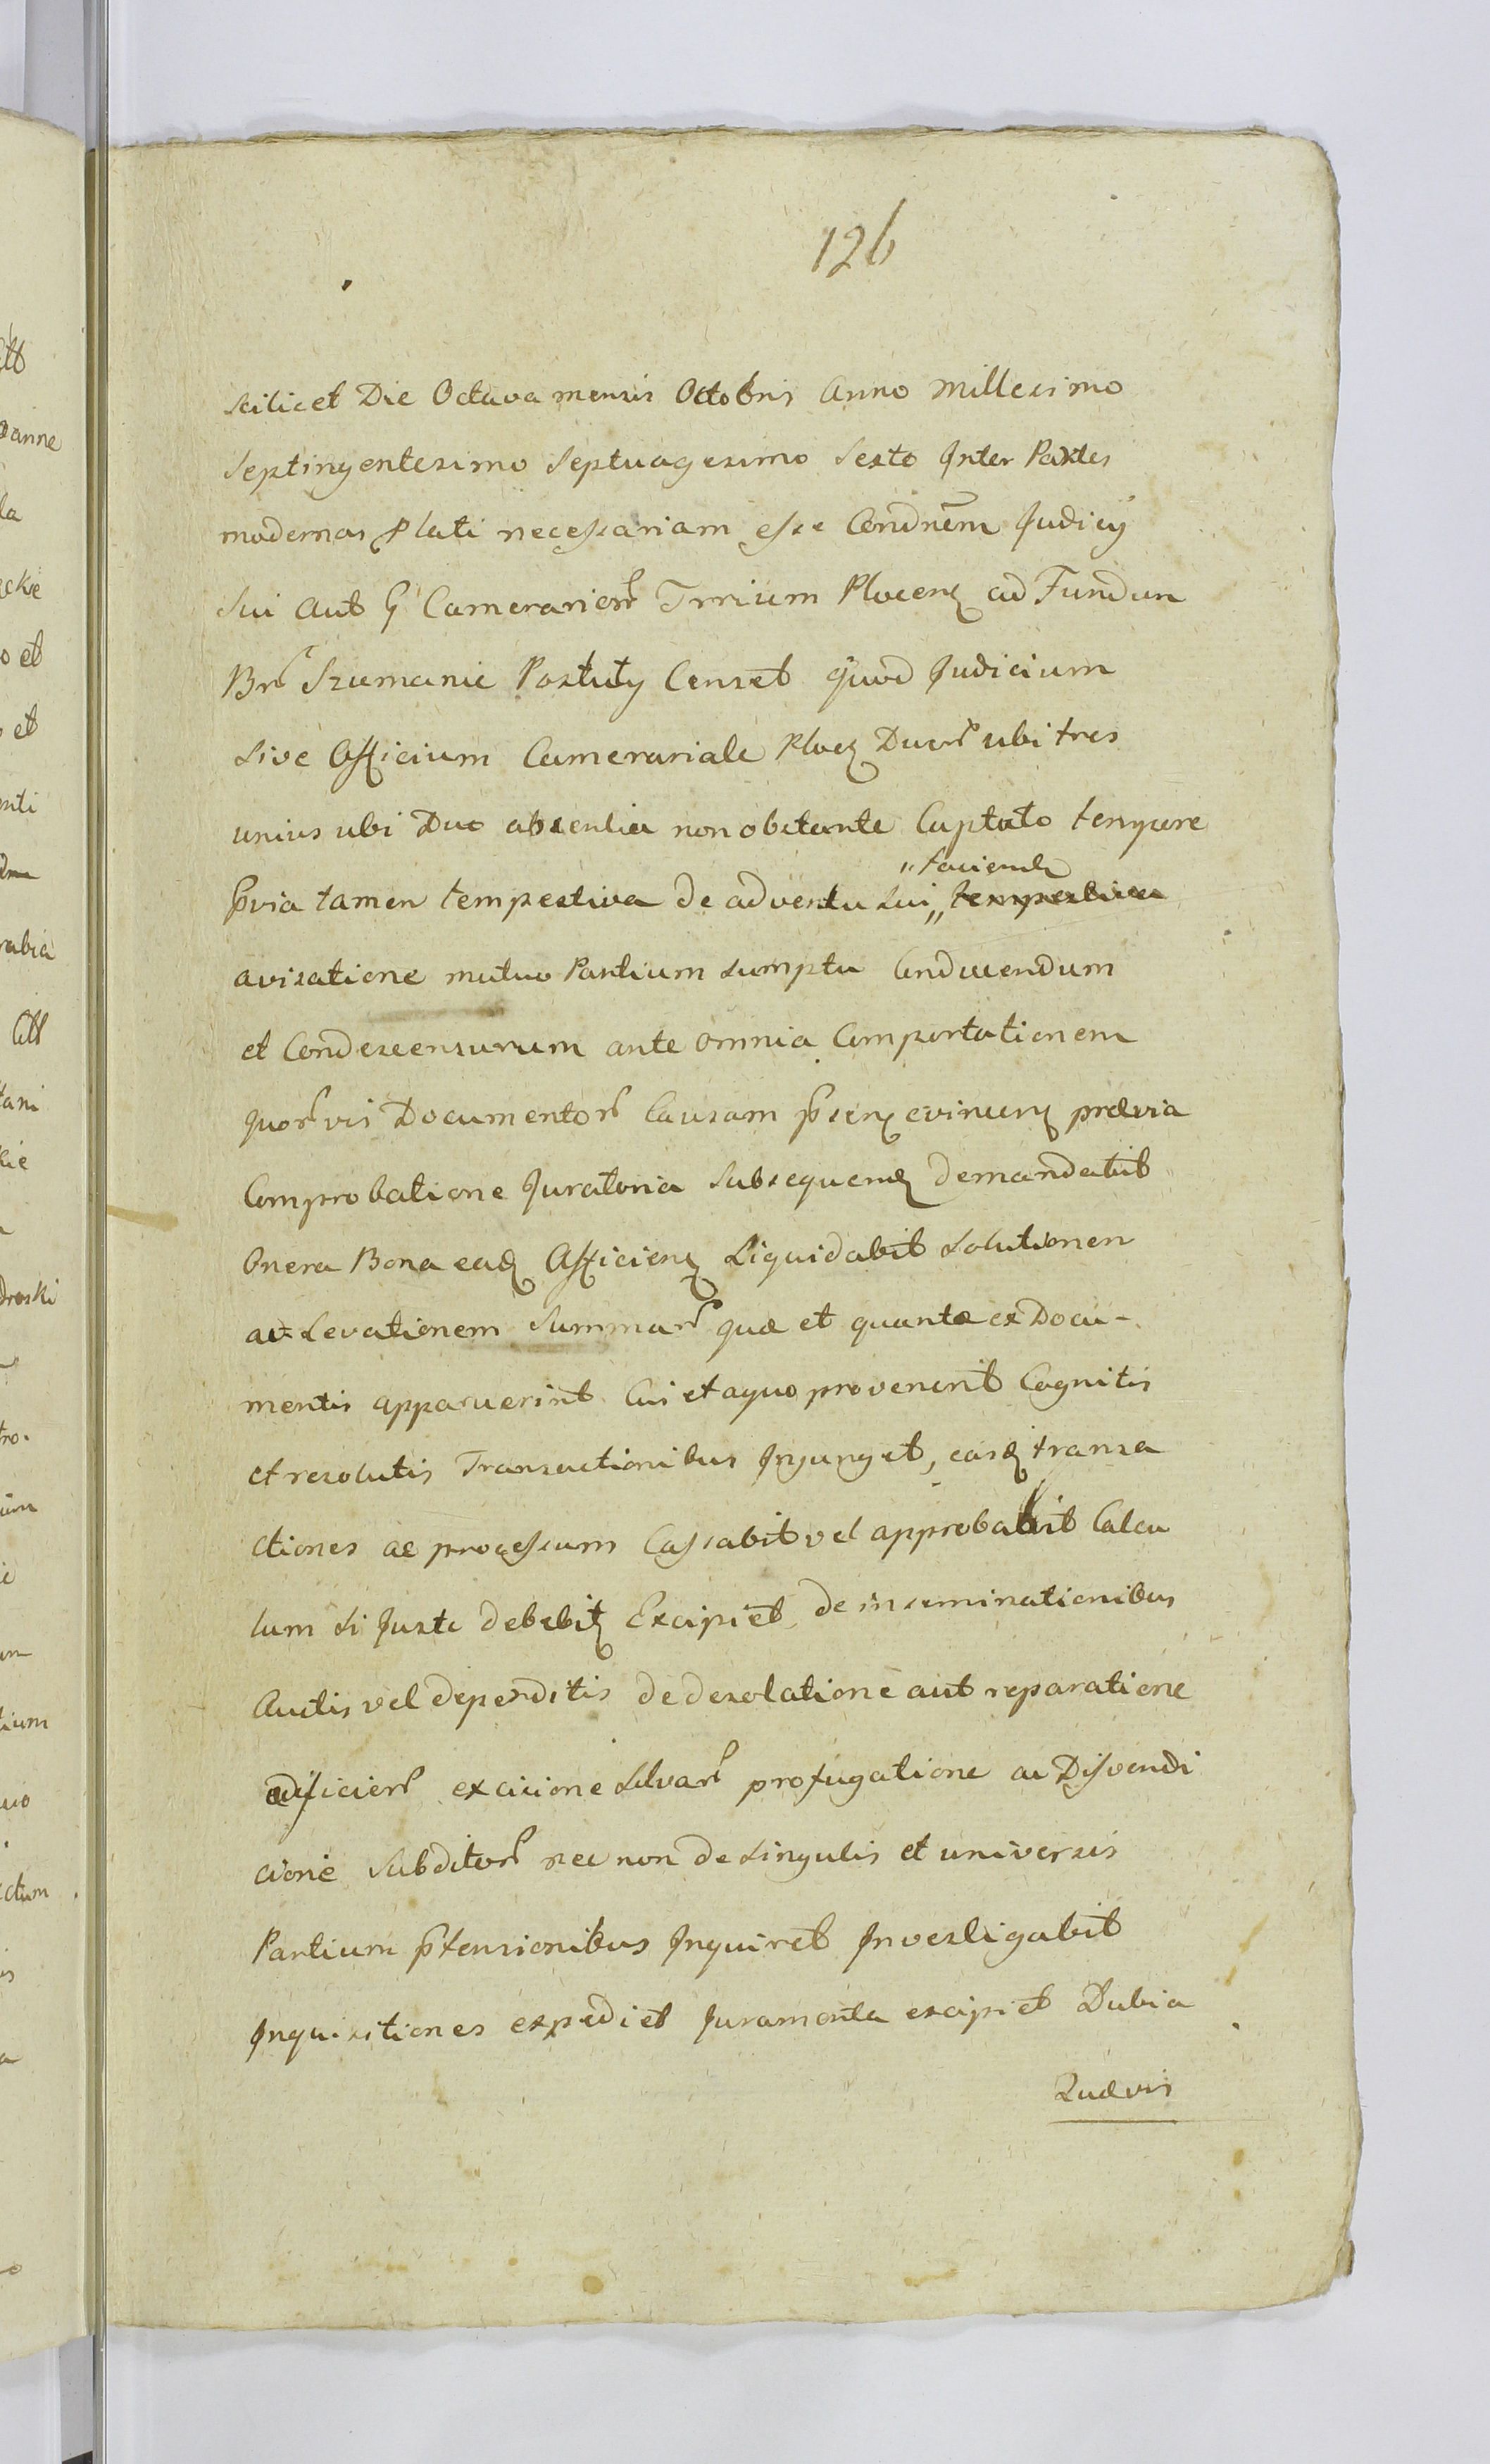 126
scilicet Die Octava mensis Octobris Anno Millesimo
Septingentesimo Septuagesimo Sexto Inter Partes
modernas Plati necessariam esse Condnem Judicij
sui aut G Camerarior Trrium Plocen ad Fundum
Bnr Szumanie Postuty Censet quod Judicium
sive Officium Camerariale Ploc Duor ubi tres
unius ubi Duo absentia non obstante Captato tempore
pvia tamen tempestiva de adventu sui „ tempestiva
„ faciend
avisatione mutuo Partium sumptu Conducendum
et Condescensurum ante omnia Comportationem
quorvis Documentor Causam psen evincen prævia
Comprobatione Juratoria subsequen demandabit
Onera Bona ead Afficien Liquidabit solutionem
ac Levationem Summar quæ et quantæ ex Docu-
mentis apparuerint Cui et a quo provenerit Cognitis
et resolutis Transactionibus Injunget, easd transa
ctiones ac processum Cassabit vel approbabit Calcu
lum si Juste debebit Excipiet de inseminationibus
Auctis vel deperditis de desolatione aut reparatione
ædificior excicione Silvar profugatione ac Disvendi
cione Subditor nec non de singulis et universis
Partium ptensionibus Inquiret Investigabit
Inquisitiones expediet Juramenta excipiet Dubia
Quævis